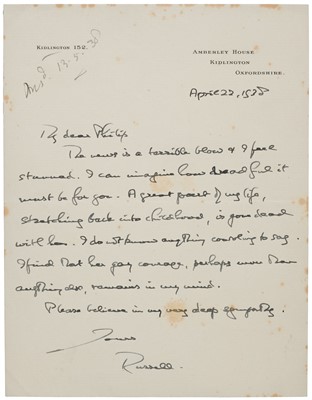 KIDLINGTON 152.
AMBERLEY HOUSE
KIDLINGTON
OXFORDSHIRE.
13.5.38
April 22, 1938
My dear Philip
The news is a terrible blow & I feel
stunned. I can imagine how dreadful it
must be for you. A great part of my life,
stretching back into childhood, is gone dead
with her. I do not know anything consoling to say.
I find that her gay courage, perhaps more than
anything else, remains in my mind.
Please believe in my very deep sympathy.
Yours
Russell.